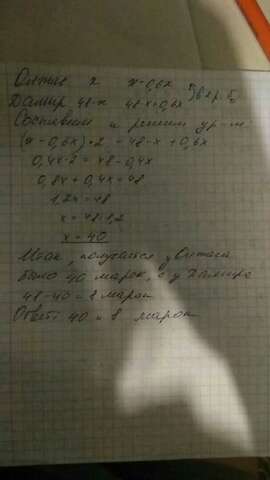 Олжас x x-0,6x
Дамир 48-x 48-x+0,6x в 2 р. б
Составим и решим ур-м
(x-0,6x)•2 = 48-x+0,6x
0,4x•2 = 48-0,4x
0,8x+0,4x=48
1,2x=48
x=48:1,2
x=40
Итак, получается у Олжаса
было 40 марок, а у Дамира
48-40=8 марок
Ответ: 40 и 8 марок